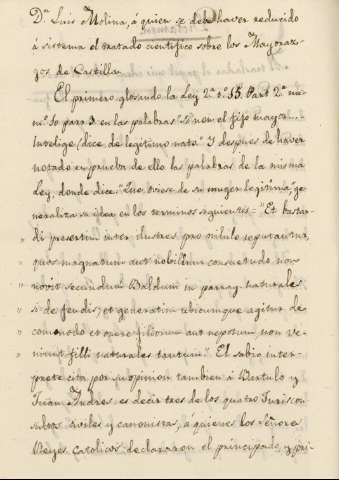 Dn. Luis Molina, á quien se debe haver reducido
á sistema el tratado cientifico sobre los Mayoraz-
gos de Castilla.
El primero glosando la Ley 2ª tº 15. Part 2ª nu-
mº 10 para 3. en las palabras "Si non el fijo mayor"-
Inteligo (dice) de legitimo nato." Y despues de haver
notado en prueba de ello las palabras de la misma
Ley, donde dice: "Que oviese de su muger legitima," ge-
neraliza su idea en los terminos siguientes = "Et bastar-
di presertim inter ilustres pro nihilo reputantur,
quos magnatum aut nobilium consuetudo non
novit secundum Baldum in parrag. naturales
si de feudis; et generatim ubicumque agitur de
comodo et opere filiorum aut nepotum, non ve-
niunt filii naturales tantum". El sabio inter-
prete cita por su opinion tambien á Bartulo y
Juan Andres, es decir tres de los quatro Juriscon-
sultos civiles y canonistas, á quienes los señores
Reyes Catolicos declararon el principado, y pri-